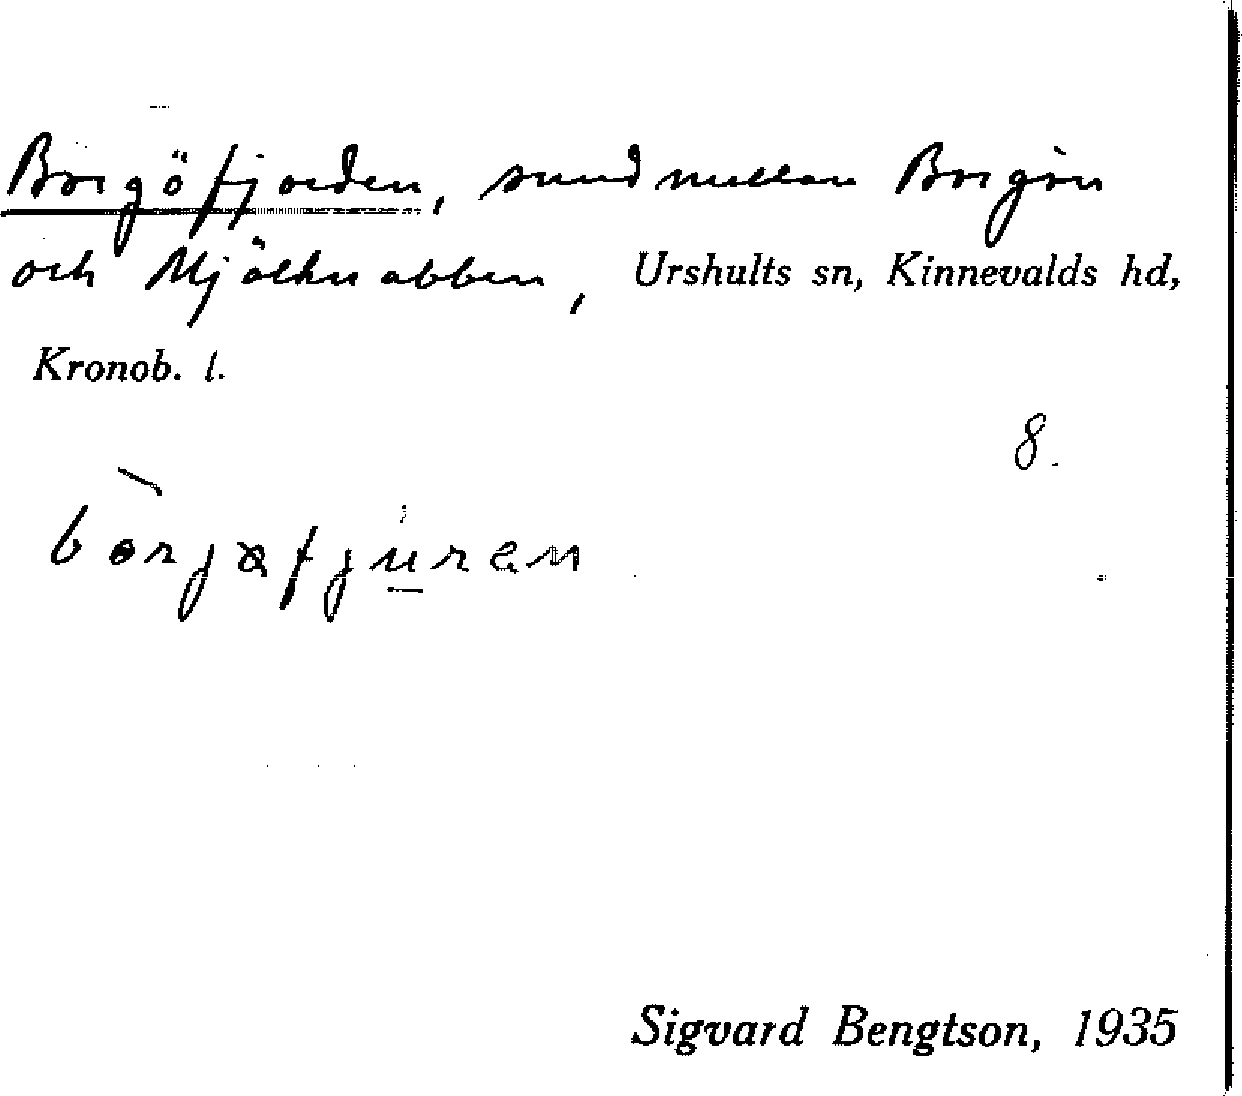 Borgöfjorden, sund mellan Borgön
och Mjölknabben, Urshults sn, Kinnevalds hd,
Kronob. l.
8.
bòrjafju̲ran
Sigvard Bengtson, 1935